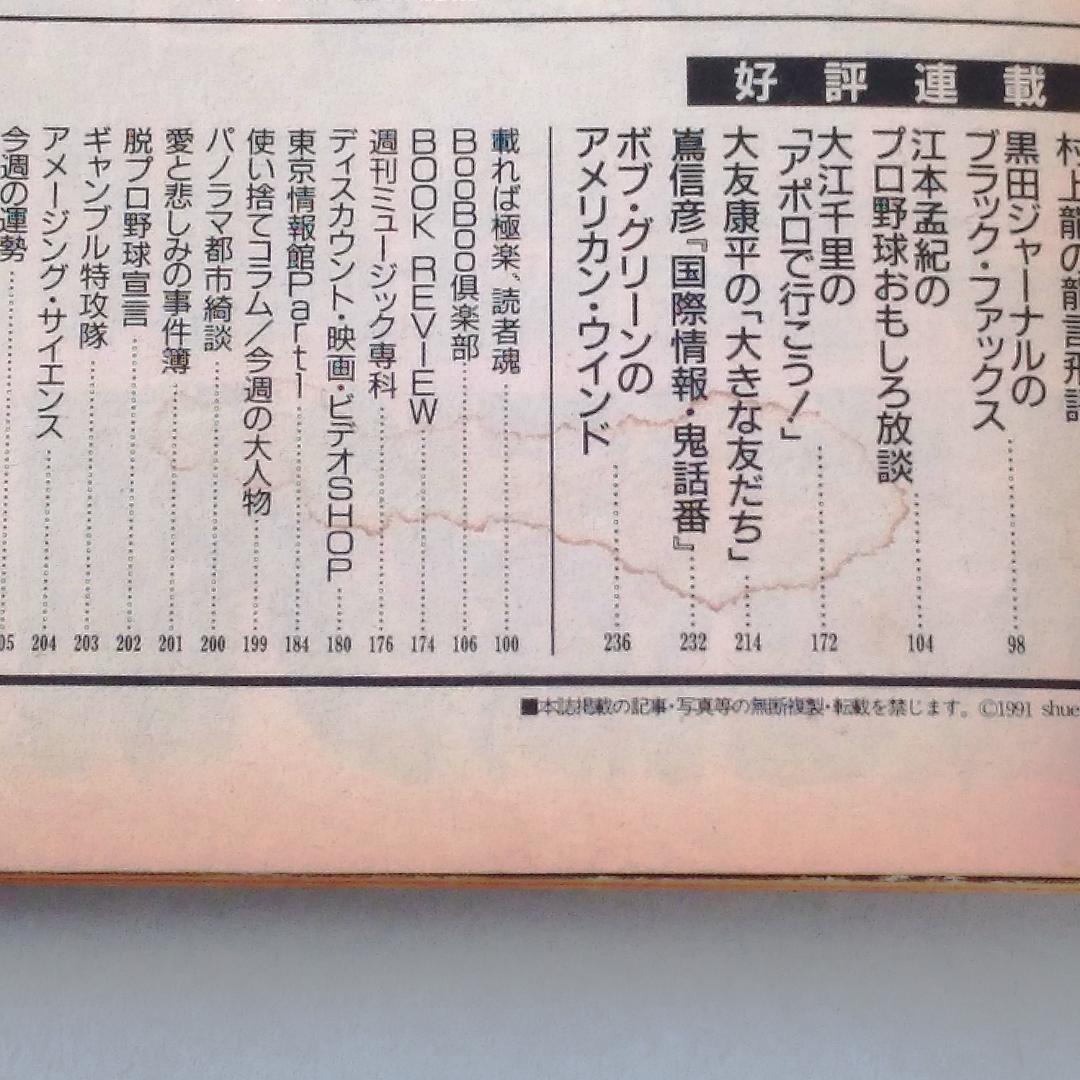 好評連載
村上龍の龍言飛語
黒田ジャーナルの
ブラック・ファックス 98
江本孟紀の
プロ野球おもしろ放談 104
大江千里の
「アポロで行こう!」 172
大友康平の「大きな友だち」 214
嶌信彦『国際情報・鬼話番』 232
ボブ・グリーンの
アメリカン・ウインド 236
載れば極楽、読者魂 100
BooBoo倶楽部 106
BOOK REVIEW 174
週刊ミュージック専科 176
ディスカウント・映画・ビデオSHOP 180
東京情報館Part1 184
使い捨てコラム/今週の大人物 199
パノラマ都市綺談 200
愛と悲しみの事件簿 201
脱プロ野球宣言 202
ギャンブル特攻隊 203
アメージング・サイエンス 204
今週の運勢 05
■本誌掲載の記事・写真等の無断複製・転載を禁じます。©1991 shue